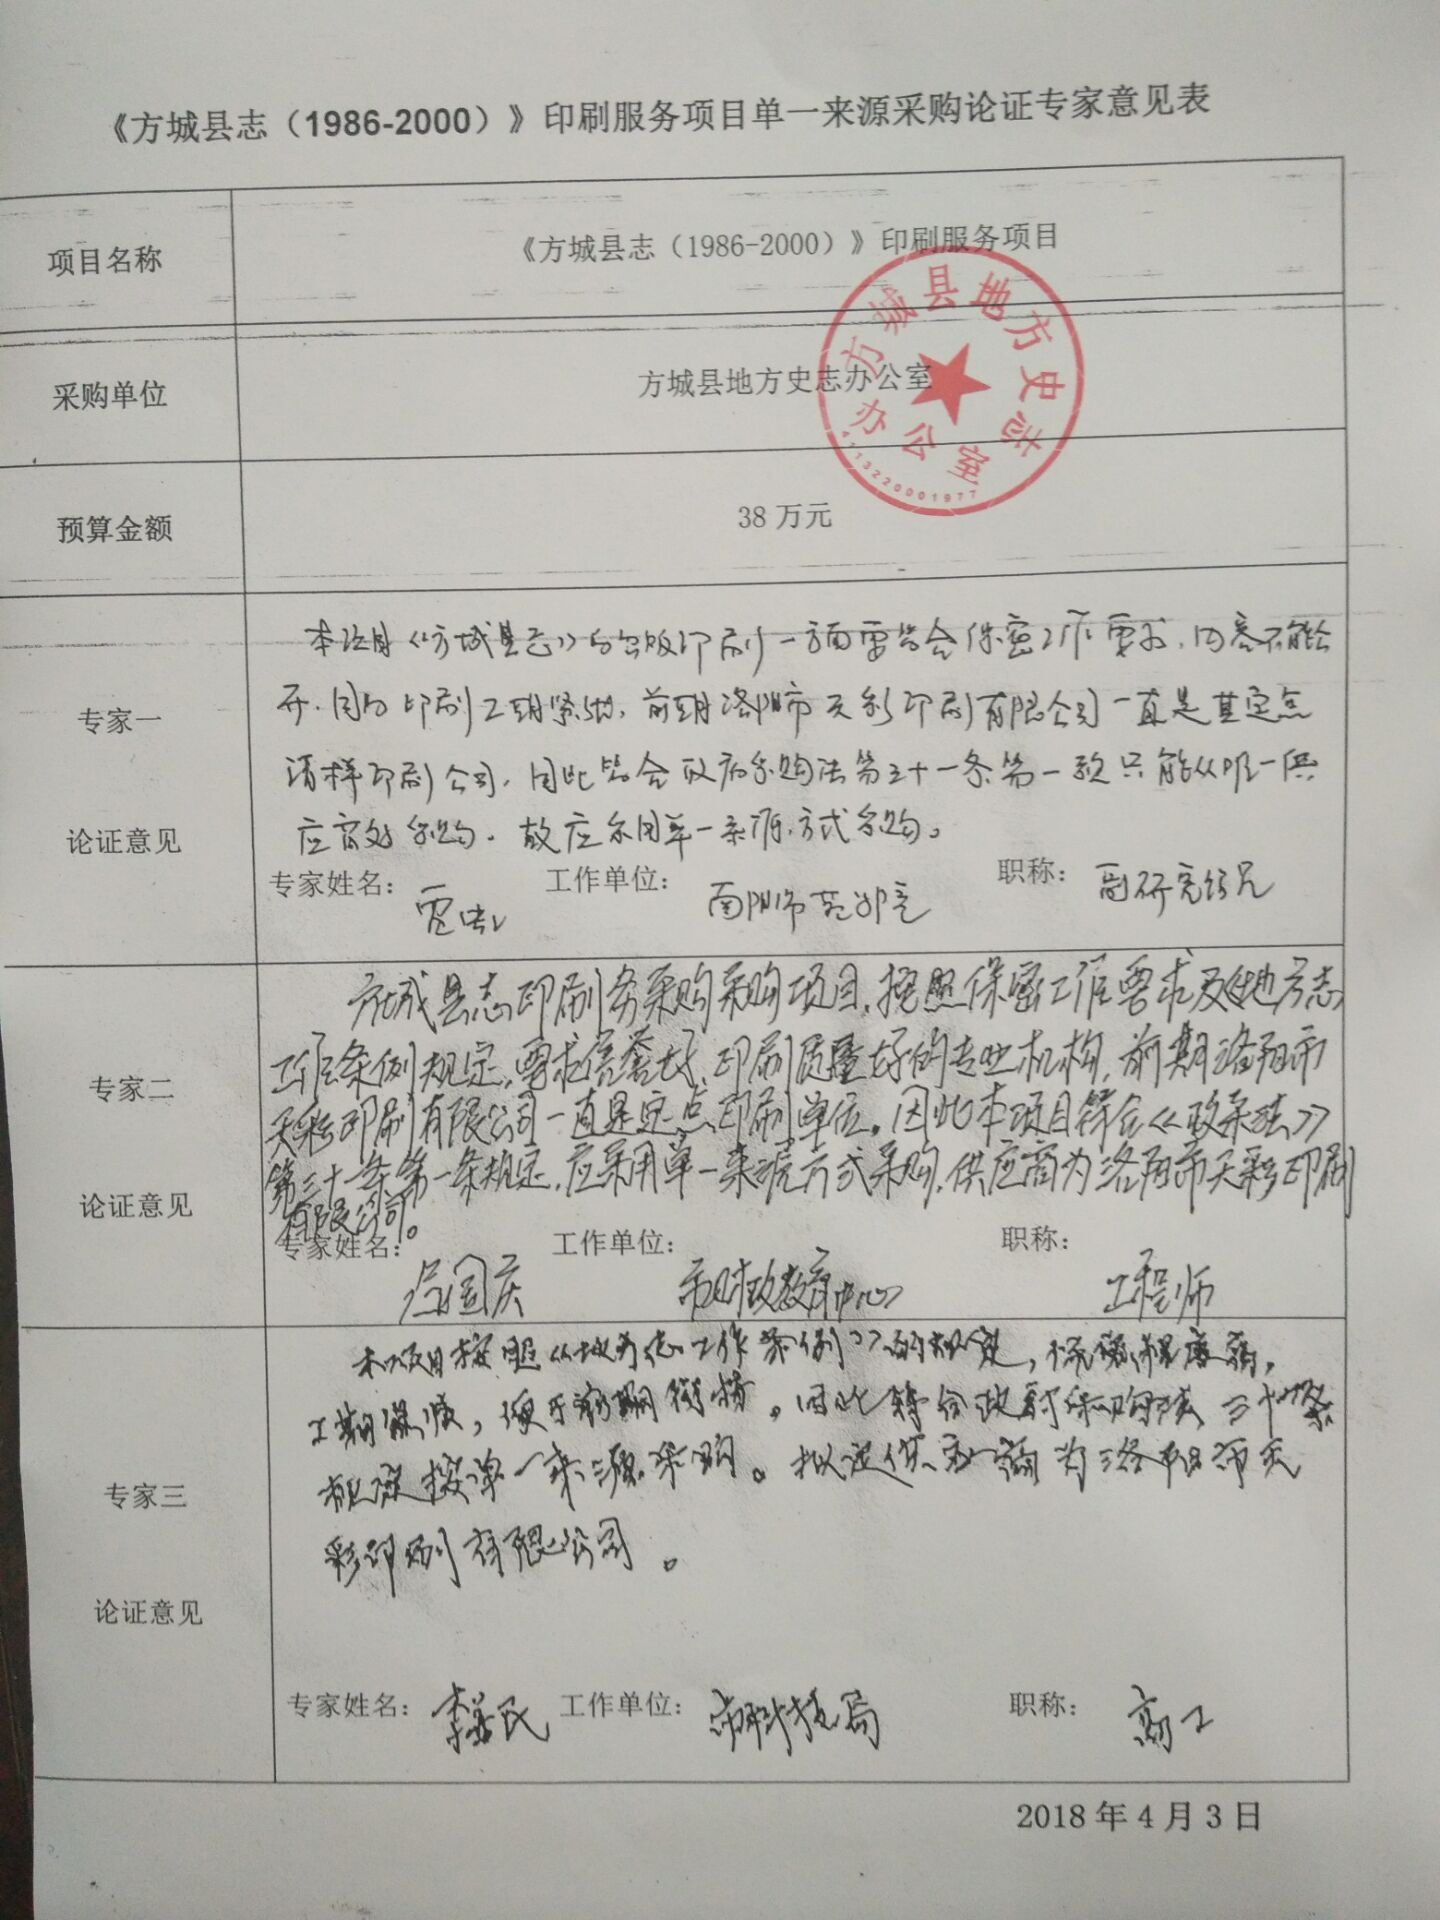 《方城县志（1986-2000）》印刷服务项目单一来源采购论证专家意见表
项目名称
《方城县志（1986-2000）》印刷服务项目
采购单位
方城县地方史志办公室
方城县地方史志
办公室
4113220001977
预算金额
38 万元
专家一
论证意见
本项目《方城县志》的出版印刷一方面需符合保密工作要求，内容不能公
开，同时印刷工期紧迫，前期洛阳市天彩印刷有限公司一直是其定点
清样印刷公司，因此符合政府采购法第三十一条第一款只能从唯一供
应商处采购，故应采用单一来源方式采购。
专家姓名：
工作单位：
南阳市
职称：
副研究馆员
专家二
论证意见
方城县志印刷务采购采购项目，按照保密工作要求及《地方志
工作条例规定，要求信誉好、印刷质量好的专业机构，前期洛阳市
天彩印刷有限公司一直是定点印刷单位。因此本项目符合《政采法》
第三十一条第一条规定，应采用单一来源方式采购，供应商为洛阳市天彩印刷
有限公司。
专家姓名：
国庆
工作单位：
市财政教育中心
职称：
工程师
专家三
论证意见
本项目按照《地方志工作条例》的规定，保密程度高，
工期紧，便于前期衔接。因此符合政府采购法三十一条
规定按单一来源采购。拟定供应商为洛阳市天
彩印刷有限公司。
专家姓名：
李 民
工作单位：
市科技局
职称：
高工
2018 年 4 月 3 日